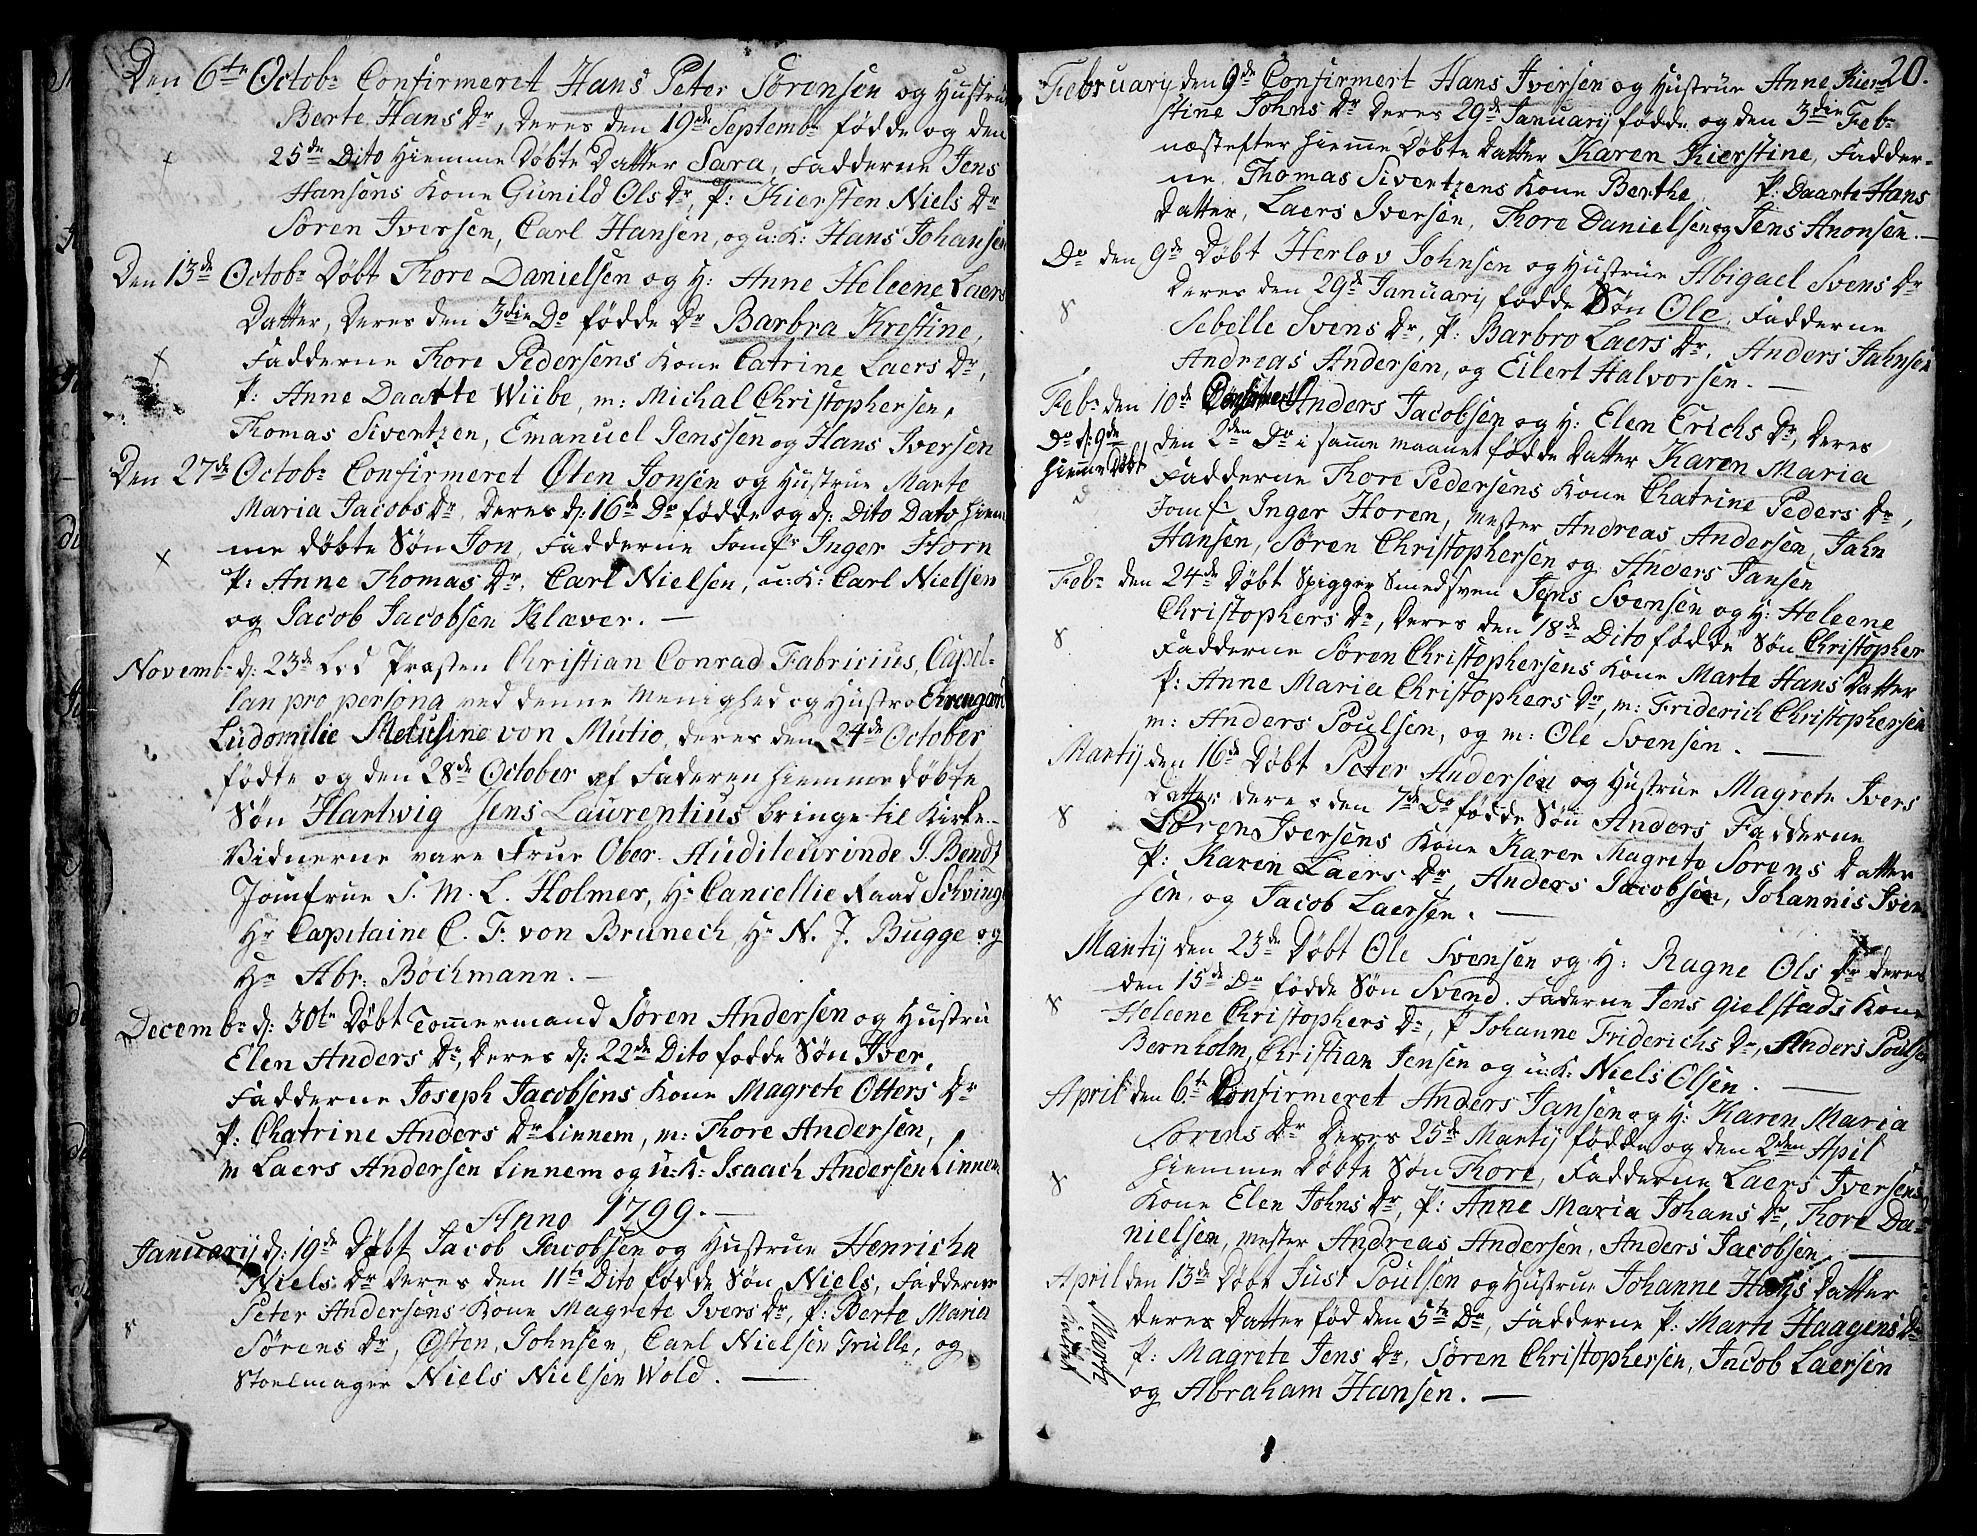 Den 6te Octobr Confirmeret Hans Peter Sørensen og Hustrue
Berte Hans Dr, Deres den 19de Septembr fødde og den
25de Dito Hiemme Døbte Datter Sara, Fadderne Jens
Hansens Kone Gunild Ols Dr, P: Kiersten Niels Dr
Søren Iversen, Carl Hansen, og u: K: Hans Johansen
Den 13de Octobr Døbt Thore Danielsen og H: Anne Heleene Laers
Datter, Deres den 3die Do fødde Dr Barbra Krestine,
Fadderne Thore Pedersens Kone Catrine Laers Dr,
P: Anne Daarte Wiibe, m: Michal Christophersen,
Thomas Sivertzen, Emanuel Jenssen og Hans Iversen
Den 27de Octobr Confirmeret Østen Jonsen og Hustrue Marte
Maria Jacobs Dr, Deres d: 16de Do fødde og d: Dito Dato Hiem
me døbte Søn Jon, Fadderne Jomfr Inger Horn
P: Anne Thomas Dr, Carl Nielsen, u: K: Carl Nielsen
og Jacob Jacobsen Klæver. —
Novembr d: 23de Lod Præsten Christian Conrad Fabricius, Capel-
lan pro persona ved denne Menighed og Hustro Ehrengard
Ludomilie Melusine von Mütio, deres den 24de October
fødte og den 28de October af Faderen hiemme døbte
Søn Hartwig Jens Laurentius bringe til Kirke.-
Vidnerne vare Frue Ober-Auditeurinde J. Bendz
Jomfrue S. M. L. Holmer, Hr Cancellie Raad Schving
Hr Capitaine C. F. von Brunech, Hr N. J. Bugge og
Hr Abr: Böchmann. —
Decembr d: 30te Døbt Tømmermand Søren Andersen og Hustru
Elen Anders Dr, Deres d: 22de Dito fødde Søn Iver,
Fadderne Joseph Jacobsens Kone Magrete Otters Dr
P: Chatrine Anders Dr Linnem, m: Thore Andersen,
m Laers Andersen Linnem og u: K: Isaach Andersen Linnem
Anno 1799. —
Januarij d: 19de Døbt Jacob Jacobsen og Hustrue Henricha
Niels Dr Deres den 11te Dito fødde Søn Niels, Fadderne
Peter Andersens Kone Magrete Ivers Dr, P: Berte Maria
Sørens Dr, Østen Johnsen, Carl Nielsen Trulle, og
Stoelmager Niels Nielsen Wold. —
20.
Februarij den 9de Confirmert Hans Iversen og Hustrue Anne Kier-
stine Johns Dr Deres 29de Januarij fødde og den 3die Febr
næstefter Hieme Døbte Datter Karen Kierstine, Fadder-
ne, Thomas Sivertzens Kone Berthe, P: Daarte Hans
Datter, Laers Iversen, Thore Danielsen og Jens Anonsen. —
Do den 9de Døbt Herlov Johnsen og Hustrue Abigael Svens Dr
Deres den 29de Januarij fødde Søn Ole, Fadderne
Sebelle Svens Dr, P: Barbro Laers Dr, Anders Jahnsen
Andreas Andersen, og Eilert Halvorsen. —
Febr den 10de Confirmert Anders Jacobsen og H: Elen Erichs Dr, Deres
Do d: 9de Hieme Døbt
den 2den Do i samme maanet fødde Datter Karen Maria
Fadderne Thore Pedersens Kone Chatrine Peders Dr,
Jomfr Inger Horen, Mester Andreas Andersen, Jahn
Hansen, Søren Christophersen og Anders Jansen
Febr den 24de Døbt Spigger Smedsven Jens Svensen og H: Heleene
Christophers Dr, Deres den 18de Dito fødde Søn Christopher
Fadderne Søren Christophersens Kone Marte Hans Datter
P: Anne Maria Christophers Dr, m: Friderich Christophersen
m: Anders Poulsen, og m: Ole Svensen. —
Martij den 16de Døbt Peter Andersen og Hustrue Magrete Ivers
Datter Deres den 7de Do fødde Søn Anders Fadderne
Søren Iversens Kone Karen Magrete Sørens Datter
P: Karen Laers Dr, Anders Jacobsen, Johannis Iver
sen, og Jacob Laersen. —
Martij den 23de Døbt Ole Svensen og H: Ragne Ols Dr Deres
den 15de Do fødde Søn Svend. Faderne Jens Gielstads Kone
Heleene Christophers Dr, P Johanne Friderichs Dr, Anders Poulsen
Bernholm, Christian Jensen og u: K: Niels Olsen. —
April den 6te Confirmeret Anders Jansen og H: Karen Maria
Sørens Dr Deres 25de Martij fødde og den 2den Apil
Hiemme Døbte Søn Thore, Fadderne Laers Iversens
Kone Elen Johns Dr, P: Anne Maria Johans Dr, Thore Da-
nielsen, Mester Andreas Andersen, Anders Jacobsen. —
April den 13de Døbt Just Poulsen og Hustrue Johanne Hans Datter
Deres Datter fød den 5te Do, Fadderne P: Marte Haagens Dr
P: Magrete Jens Dr, Søren Christophersen, Jacob Laersen
og Abraham Hansen. —